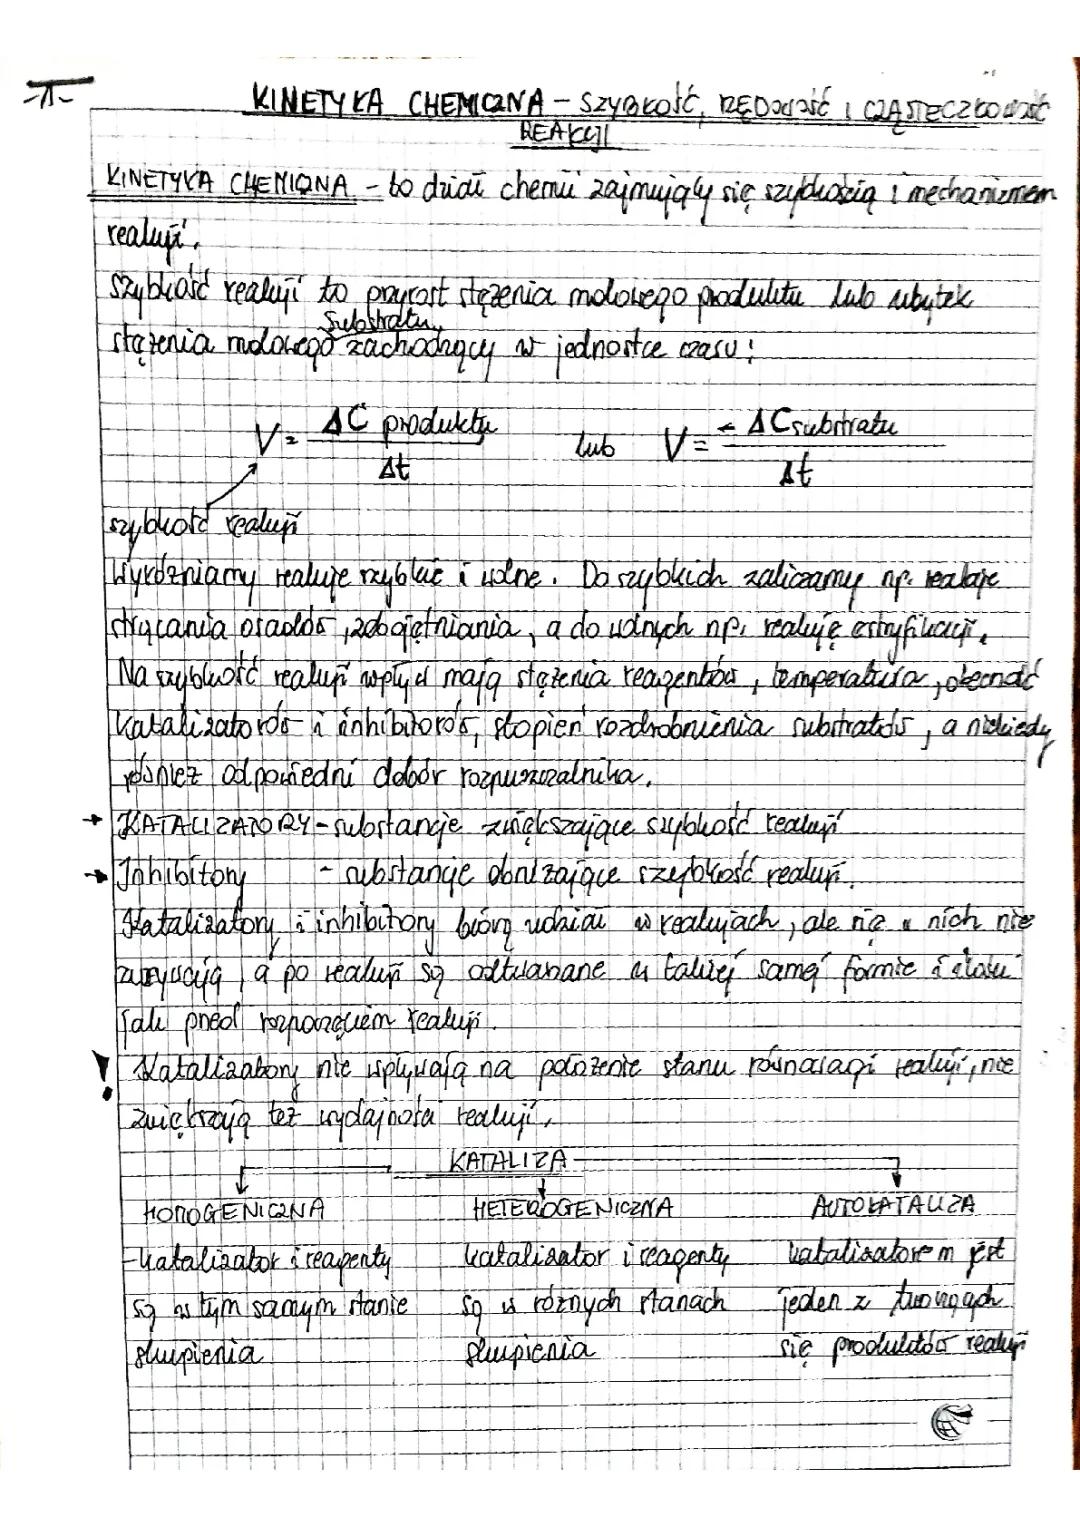 -1-
KINETYKA CHEMICZNA - SZYBKOŚĆ, RZĘDOWOŚĆ I CZĄSTECZKOWOŚĆ
REAKCJI
KINETYKA CHEMICZNA - to dział chemii zajmujący się szybkością i mechanizmem
reakcji.
Szybkość reakcji to przyrost stężenia molowego produktu lub ubytek
substratu,
stężenia molowego zachodzący w jednostce czasu:
V = ΔC produktu / Δt lub V = - ΔC substratu / Δt
szybkość reakcji
Wyróżniamy reakcje szybkie i wolne. Do szybkich zaliczamy np. reakcje
strącania osadów, zobojętniania, a do wolnych np. reakcje estryfikacji.
Na szybkość reakcji wpływ mają stężenia reagentów, temperatura, obecność
katalizatorów i inhibitorów, stopień rozdrobnienia substratów, a niekiedy
również odpowiedni dobór rozpuszczalnika.
→ KATALIZATORY - substancje zwiększające szybkość reakcji
→ Inhibitory - substancje obniżające szybkość reakcji.
Katalizatory i inhibitory biorą udział w reakcjach, ale się w nich nie
zużywają, a po reakcji są odtwarzane w takiej samej formie i stanu
jak przed rozpoczęciem reakcji.
! Katalizatory nie wpływają na położenie stanu równowagi reakcji, nie
zwiększają też wydajności reakcji.
KATALIZA
HOMOGENICZNA HETEROGENICZNA AUTOKATALIZA
- katalizator i reagenty katalizator i reagenty katalizatorem jest
są w tym samym stanie są w różnych stanach jeden z tworzących
skupienia skupienia się produktów reakcji